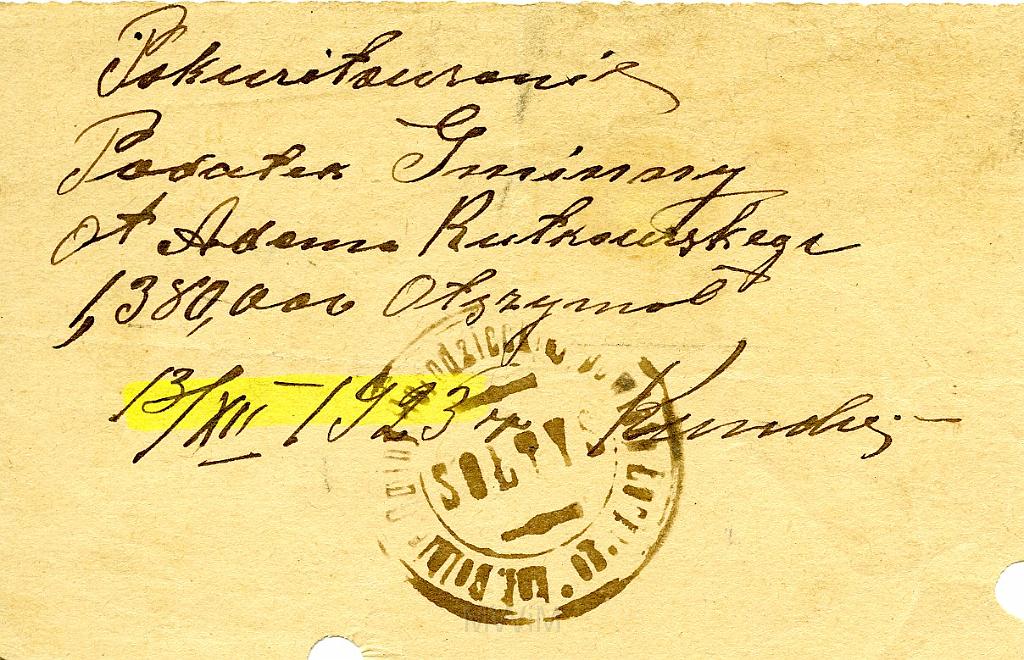 Pokwitowanie
Podatek Gminny
ot Adama Rutkowskego
1,380,000 Otrzymał
13/XII – 1923 r
SOŁTYS